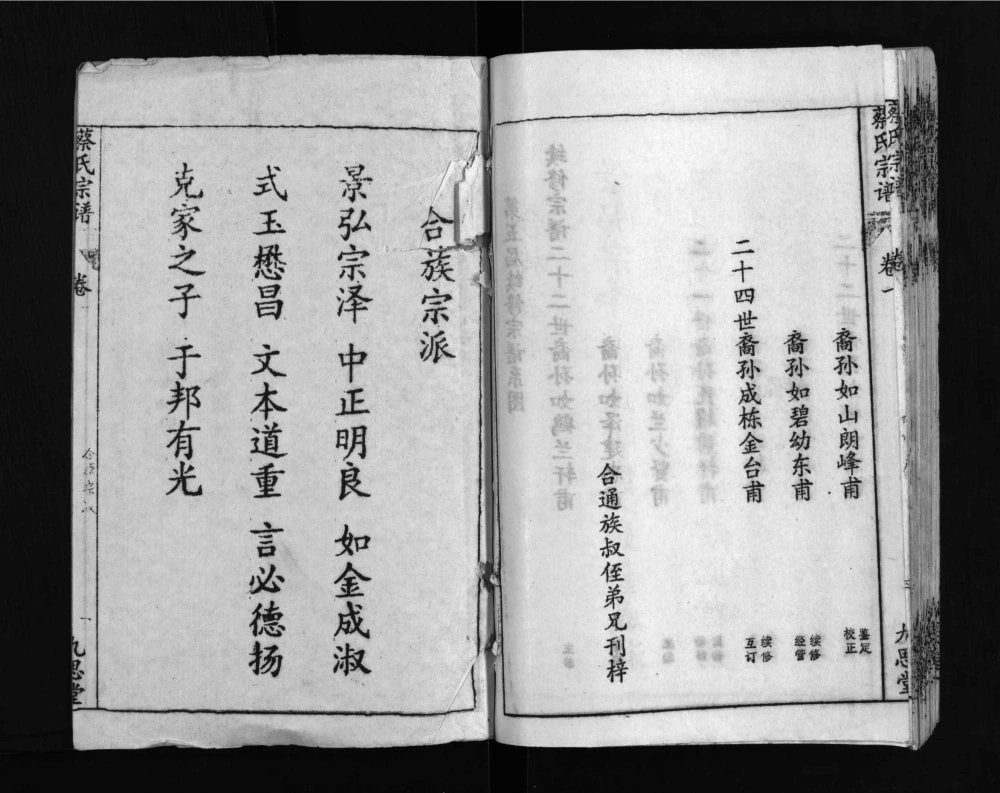 蔡氏宗谱
卷一
九思堂
裔孙如山朗峰甫
鉴定
校正
裔孙如碧幼东甫
续修
经管
二十四世裔孙成栋金台甫
续修
互订
合通族叔侄弟兄刊梓
合族宗派
景弘宗泽 中正明良 如金成淑
式玉懋昌 文本道重 言必德扬
克家之子 于邦有光
蔡氏宗谱
卷一
九思堂